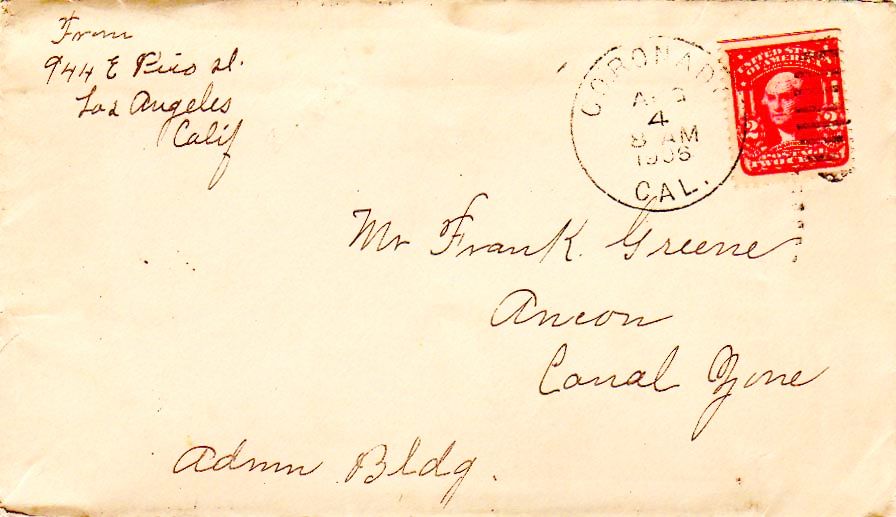 From
944 E Pico St.
Los Angeles
Calif
CORONADO
AUG
4
8 AM
1906
CAL.
UNITED STATES
OF AMERICA
2 2
POSTAGE
TWO CENTS
Mr Frank. Greene
Ancon
Canal Zone
Admn Bldg.